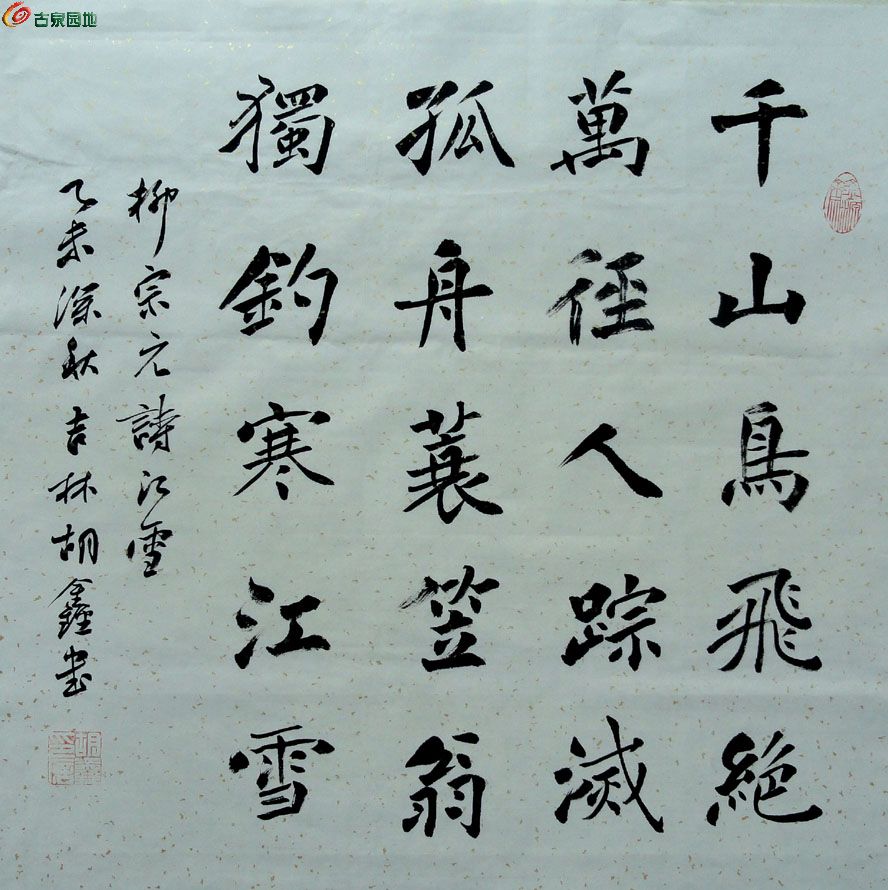 古泉园地
千山鳥飛絶
萬徑人踪滅
孤舟蓑笠翁
獨釣寒江雪
柳宗元詩江雪
乙未深秋吉林胡鑫書